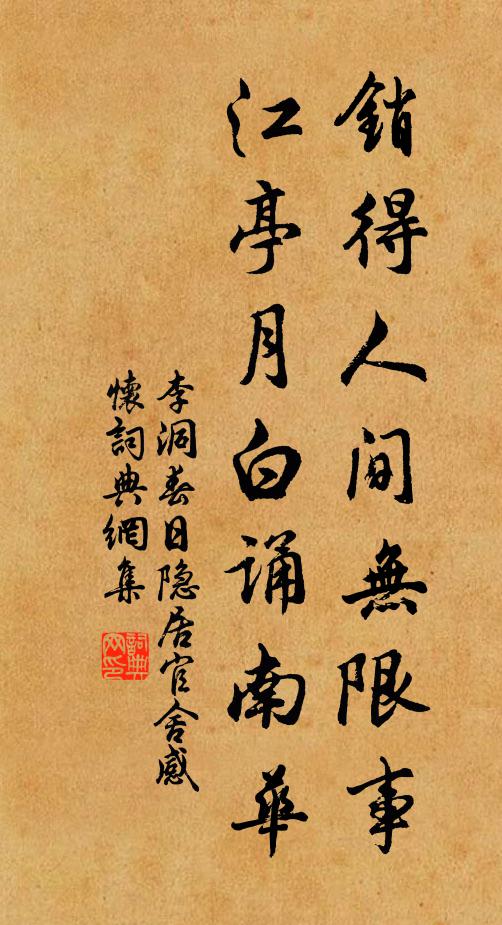 銷得人間無限事
江亭月白誦南華
李洞春日隐居官舍感
懷詞典網集
詞典
网印